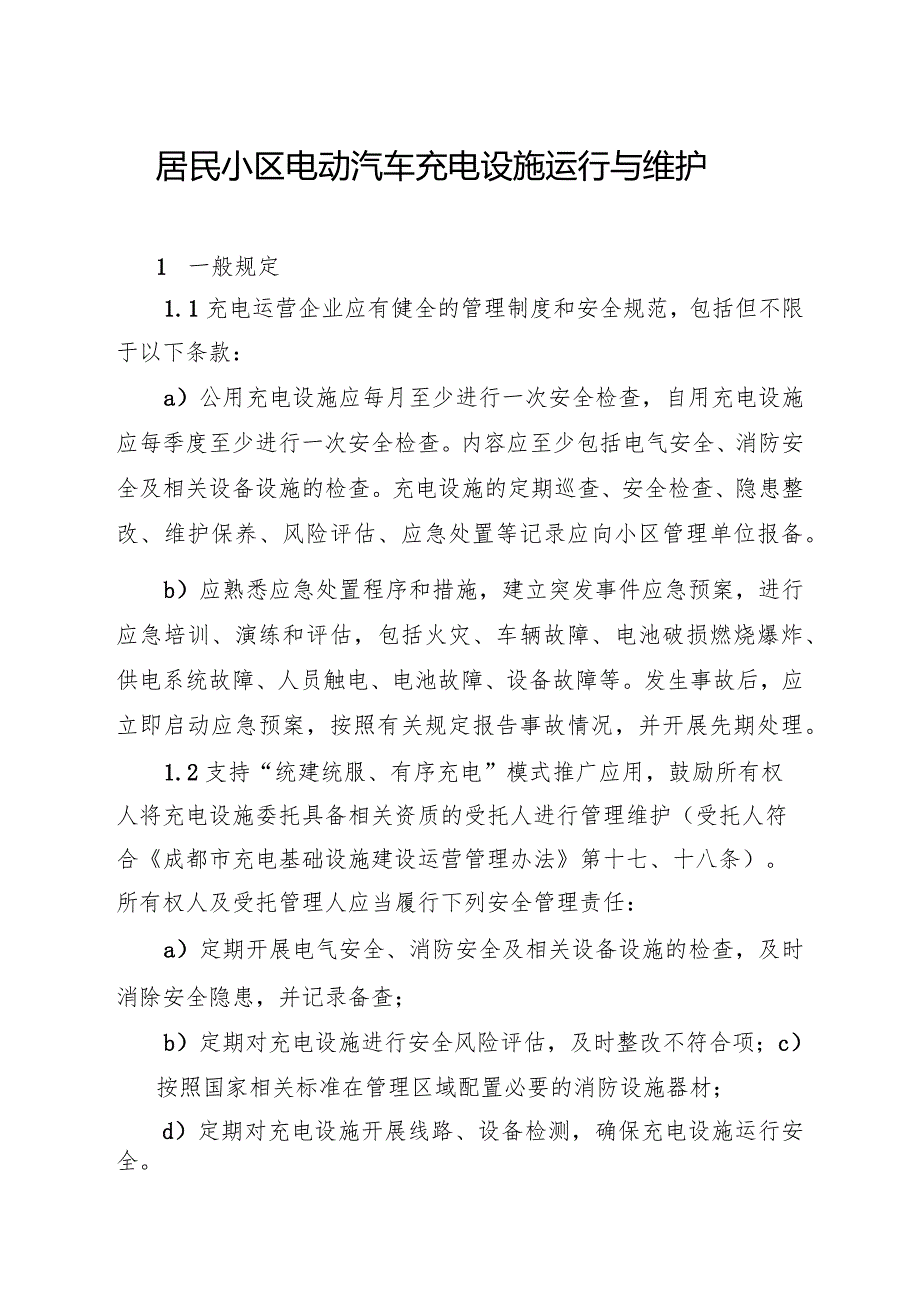 居民小区电动汽车充电设施运行与维护
1 一般规定
1.1充电运营企业应有健全的管理制度和安全规范，包括但不限
于以下条款：
a）公用充电设施应每月至少进行一次安全检查，自用充电设施
应每季度至少进行一次安全检查。内容应至少包括电气安全、消防安
全及相关设备设施的检查。充电设施的定期巡查、安全检查、隐患整
改、维护保养、风险评估、应急处置等记录应向小区管理单位报备。
b）应熟悉应急处置程序和措施，建立突发事件应急预案，进行
应急培训、演练和评估，包括火灾、车辆故障、电池破损燃烧爆炸、
供电系统故障、人员触电、电池故障、设备故障等。发生事故后，应
立即启动应急预案，按照有关规定报告事故情况，并开展先期处理。
1.2支持“统建统服、有序充电”模式推广应用，鼓励所有权
人将充电设施委托具备相关资质的受托人进行管理维护（受托人符
合《成都市充电基础设施建设运营管理办法》第十七、十八条）。
所有权人及受托管理人应当履行下列安全管理责任：
a）定期开展电气安全、消防安全及相关设备设施的检查，及时
消除安全隐患，并记录备查；
b）定期对充电设施进行安全风险评估，及时整改不符合项；c）
按照国家相关标准在管理区域配置必要的消防设施器材；
d）定期对充电设施开展线路、设备检测，确保充电设施运行安
全。